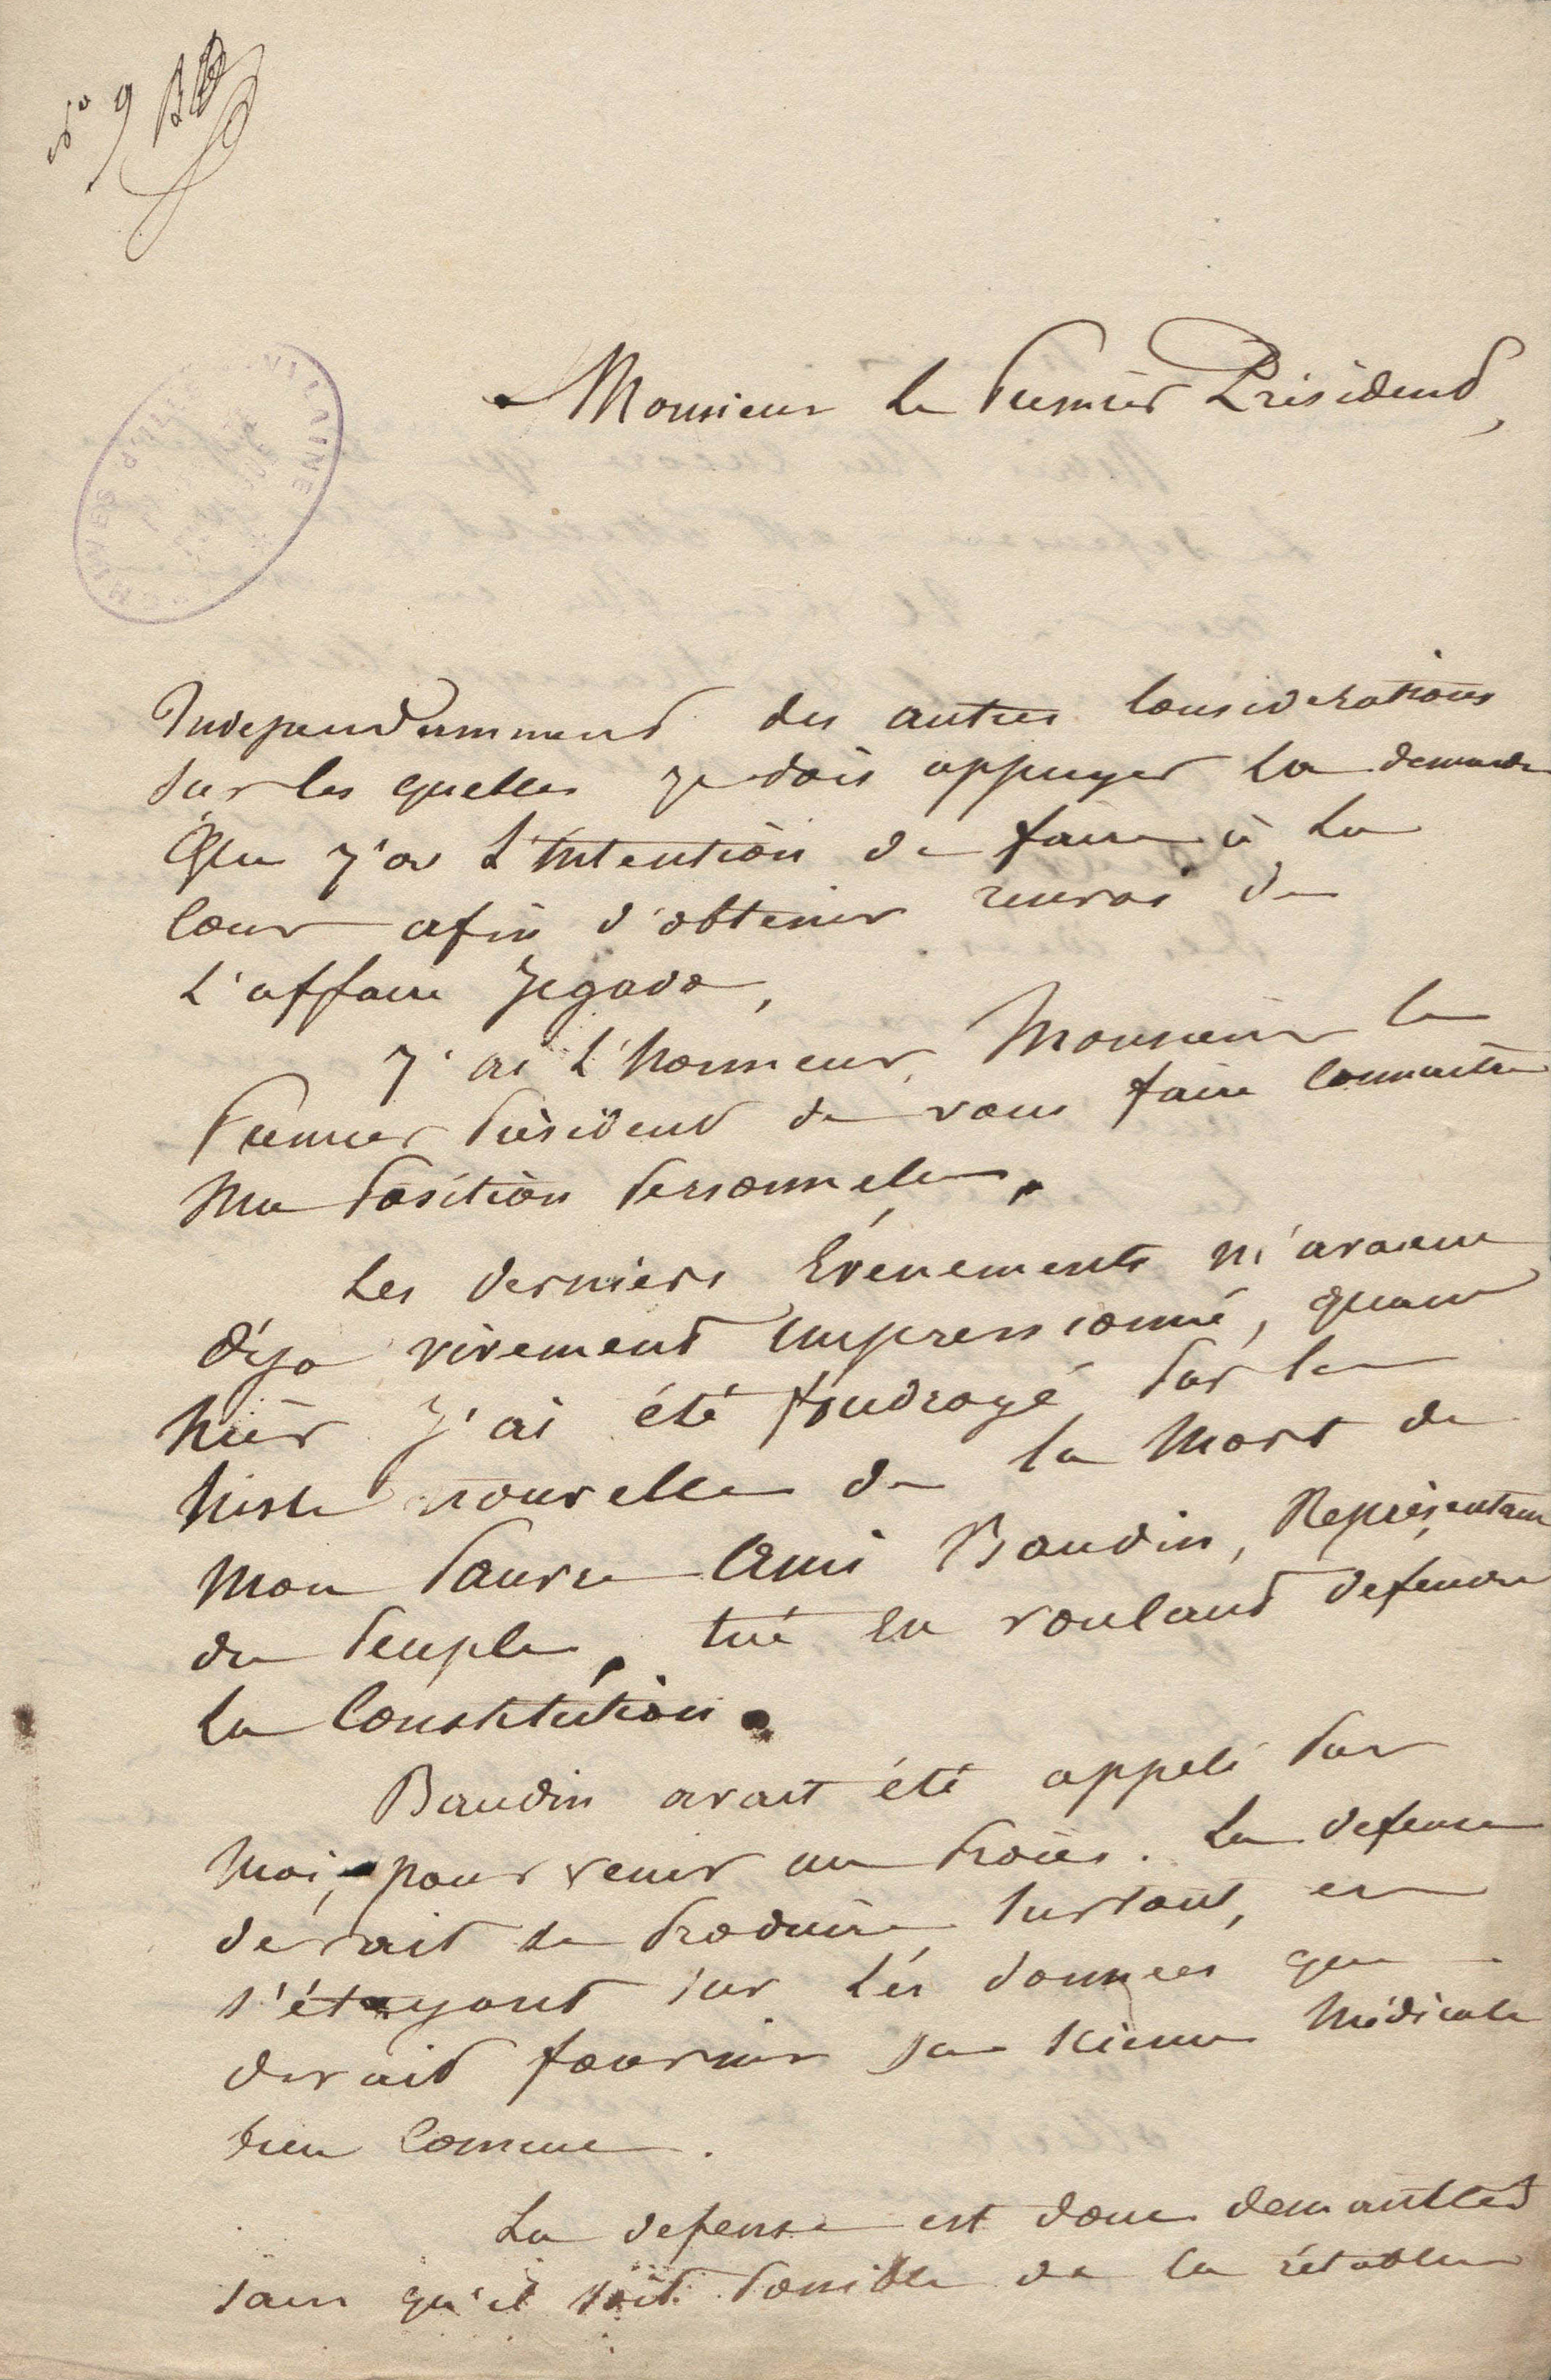 No 9
Monsieur le Premier Président,
Independamment des autres considerations
sur les quelles je dois appuyer la demande
que j'ai l'intention de faire à la
cour afin d'obtenir renvoi de
l'affaire Jegado,
J'ai l'honneur, Monsieur le
Premier Président de vous faire connaitre
ma position personnelle,
Les derniers évenements m'avaient
déja vivement impressionné, quand
hier j'ai été foudroyé par la
triste nouvelle de la mort de
mon pauvre ami Baudin, Représentant
du Peuple, tué en voulant defendre
la Constitution.
Baudin avait été appelé par
moi, pour venir au procès. La defense
devait se produire surtout, en
s'étayant sur les données que
devait fournir sa science médicale
bien connue.
La defense est donc demantelée
sans qu'il soit possible de la rétablir